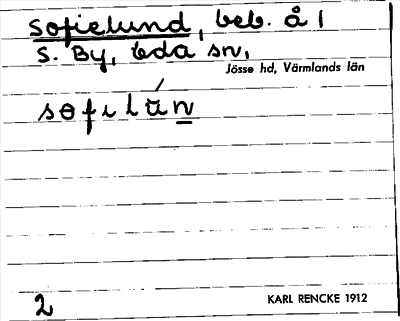 Sofielund, beb. å 1
S. By, Eda sn,
Jösse hd, Värmlands län
sofilún
2
KARL RENCKE 1912